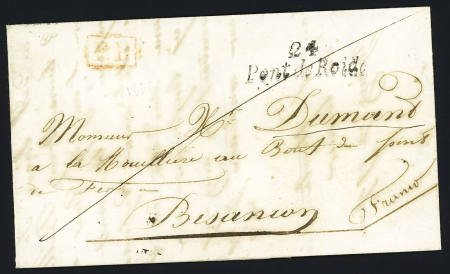 P.P.
24
Pont de Roide
Monsieur Mr Dumand
a la Mouillere au Bout du pont
de
Besancon
Franco